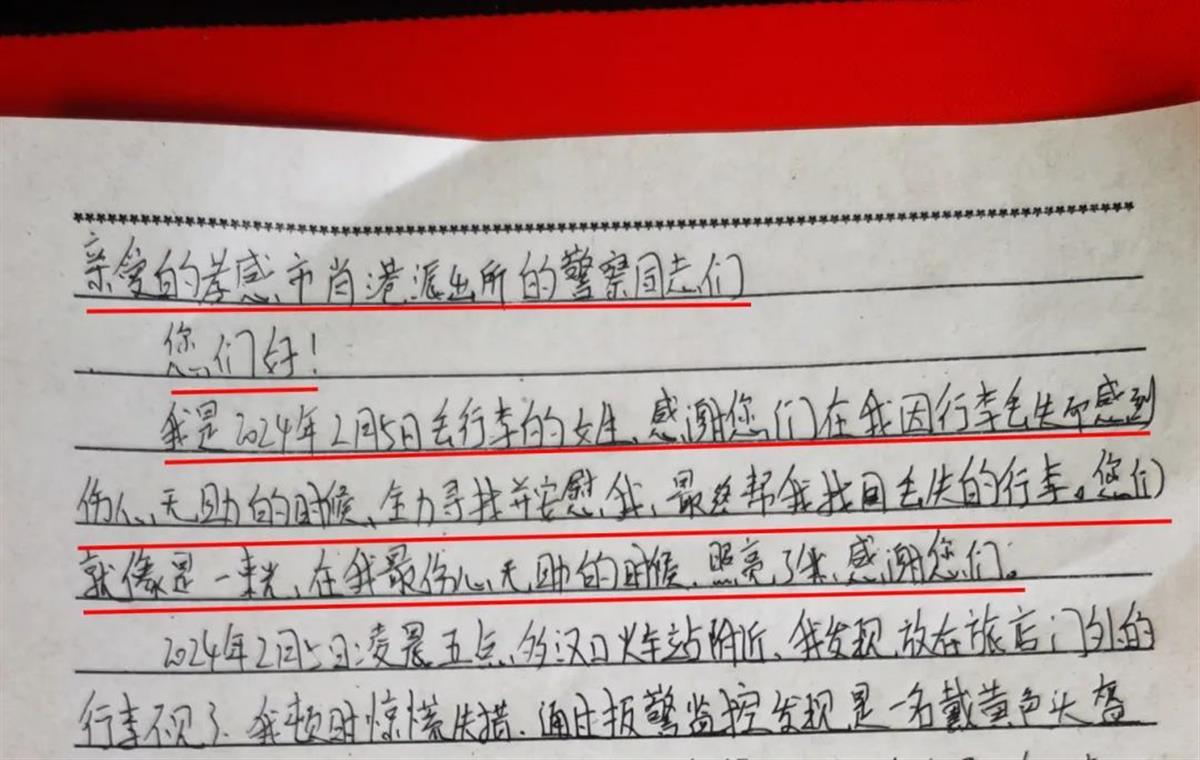 亲爱的孝感市肖港派出所的警察同志们
您们好!
我是2024年2月5日丢行李的女生、感谢您们在我因行李丢失而感到
伤心、无助的时候、全力寻找并安慰我、最终帮我找回丢失的行李。您们
就像是一束光,在我最伤心、无助的时候、照亮了我,感谢您们。
2024年2月5日凌晨五点,多汉口火车站附近、我发现放在旅店门外的
行李不见了、我顿时惊慌失措、通过报警监控发现是一名戴黄色头盔